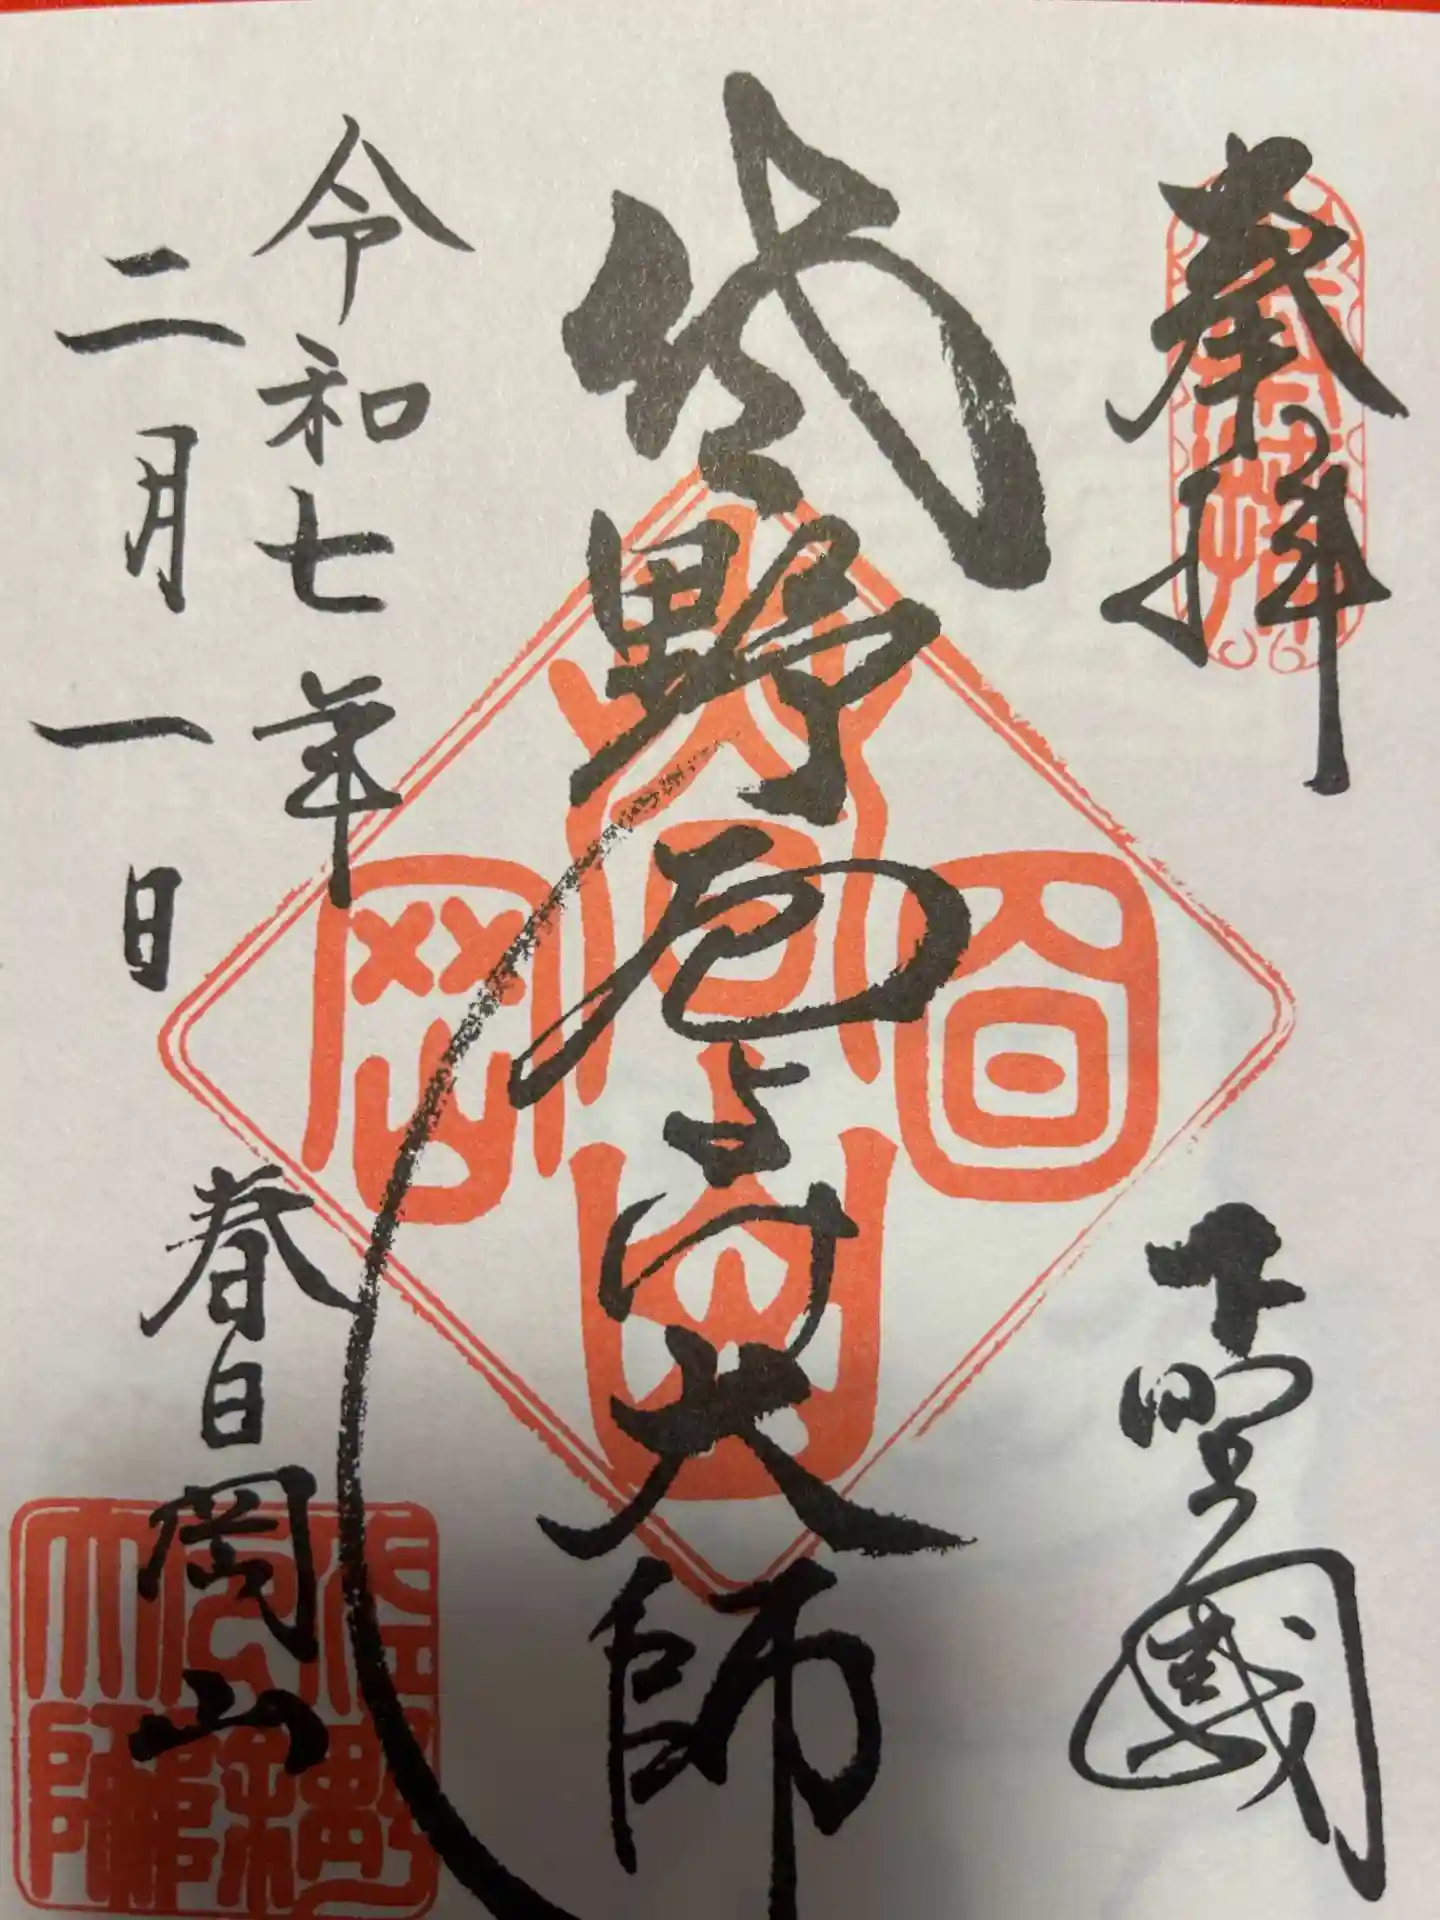 奉拝
下野國
佐野厄よけ大師
令和七年
二月一日
春日岡山